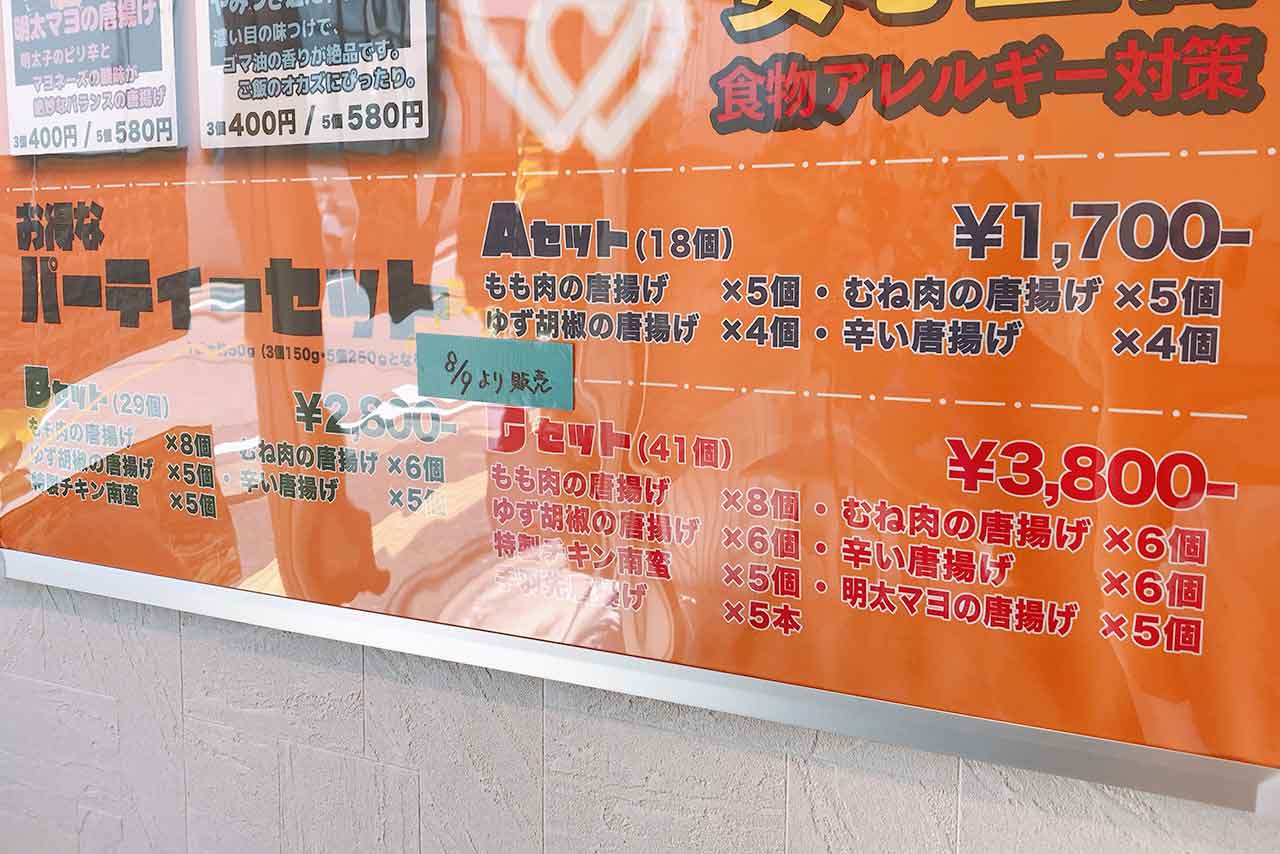 明太マヨの唐揚げ
明太子のピリ辛と
マヨネーズの酸味が
絶妙なバランスの唐揚げ
3個400円 / 5個580円
濃い目の味つけで、
ゴマ油の香りが絶品です。
ご飯のオカズにぴったり。
3個400円 / 5個580円
食物アレルギー対策
お得な
パーティーセット
(3個150g・5個250gとな
8/9より販売
Aセット(18個) ¥1,700-
もも肉の唐揚げ ×5個・むね肉の唐揚げ ×5個
ゆず胡椒の唐揚げ ×4個・辛い唐揚げ ×4個
Bセット(29個) ¥2,800-
もも肉の唐揚げ ×8個 むね肉の唐揚げ ×6個
ゆず胡椒の唐揚げ ×5個・辛い唐揚げ ×5個
特製チキン南蛮 ×5個
Cセット(41個) ¥3,800-
もも肉の唐揚げ ×8個・むね肉の唐揚げ ×6個
ゆず胡椒の唐揚げ ×6個・辛い唐揚げ ×6個
特製チキン南蛮 ×5個・明太マヨの唐揚げ ×5個
手羽先唐揚げ ×5本